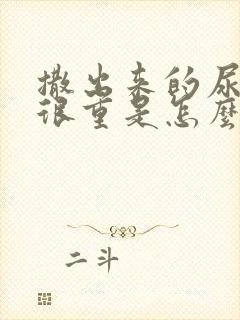 撒出来的尿
很重是怎麼
二斗